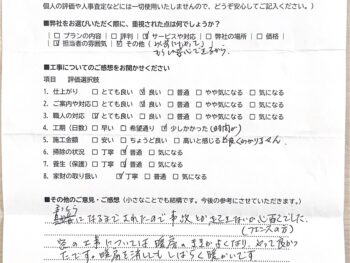 個人の評価や人事査定などには一切使用いたしませんので、どうぞ安心してご記入ください。)
■弊社をお選びいただく際に、重視された点は何でしょうか?
□プランの内容 □評判 ☑サービスや対応 □弊社の場所 □価格
☑担当者の雰囲気 ☑その他(以前に
もらい安心できるから。
■工事についてのご感想をお聞かせください
項目 評価選択肢
1. 仕上がり □とても良い ☑良い □普通 □やや気になる □気になる
2. ご案内や対応 □とても良い ☑良い □普通 □やや気になる □気になる
3. 職人の対応 ☑とても良い □良い □普通 □やや気になる □気になる
4. 工期(日数) □早い □希望通り ☑少しかかった(時間が)
5. 施工金額 □安い □ちょうど良い □高いと感じる ☑良くわかりません。
6. 掃除の状況 □丁寧 ☑普通 □気になる
7. 養生(保護) □丁寧 ☑普通 □気になる
8. 家財の取り扱い □丁寧 ☑普通 □気になる
■その他のご意見・ご感想(小さなことでも結構です。今後の参考にさせていただきます。)
になるまでされたので 心配でした。
(フェンスの方)
窓の工事については暖房の よくなり、やって良かっ
たです。暖房を消してもしばらく暖かいです